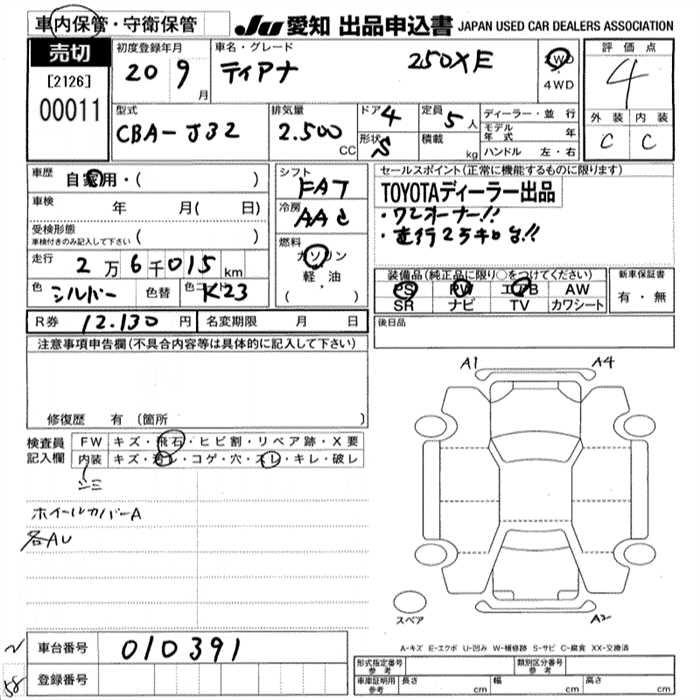 車内保管・守衛保管 JU 愛知 出品申込書 JAPAN USED CAR DEALERS ASSOCIATION
売切
[2126]
00011
初度登録年月
20 9 月
車名・グレード
ティアナ 250XE
2WD
・
4WD
評価点
4
外装 内装
C C
型式
CBA-J32
排気量
2.500 CC
ドア 4
形状 S
定員 5 人
積載 kg
ディーラー・並行
モデル年式 年
ハンドル 左・右
車歴 自家用・( )
車検 年 月( 日)
受検形態
車検付きのみ記入して下さい ( )
走行 2万6千015km
色 シルバー 色替 色コード K23
シフト FAT
冷房 AAC
燃料
ガソリン
・
軽・油
( )
セールスポイント(正常に機能するものに限ります)
TOYOTAディーラー出品
・ワンオーナー!!
・走行2万キロ台!!
装備品(純正品に限り○をつけてください)
PS PW エアB AW
SR ナビ TV カワシート
新車保証書
有・無
R券 12.130 円 名変期限 月 日
後日品
注意事項申告欄(不具合内容等は具体的に記入して下さい)
修復歴 有(箇所 )
検査員記入欄
FW キズ・飛石・ヒビ割・リペア跡・X要
内装 キズ・汚レ・コゲ・穴・スレ・キレ・破レ
シミ
ホイールカバーA
各AU
A1 A4
スペア
A2
A-キズ E-エクボ U-凹み W-補修跡 S-サビ C-腐食 XX-交換済
車台番号 010391
登録番号
58
形式指定番号
参考
類別区分番号
参考
車庫証明用
参考
長さ cm 幅 cm 高さ cm